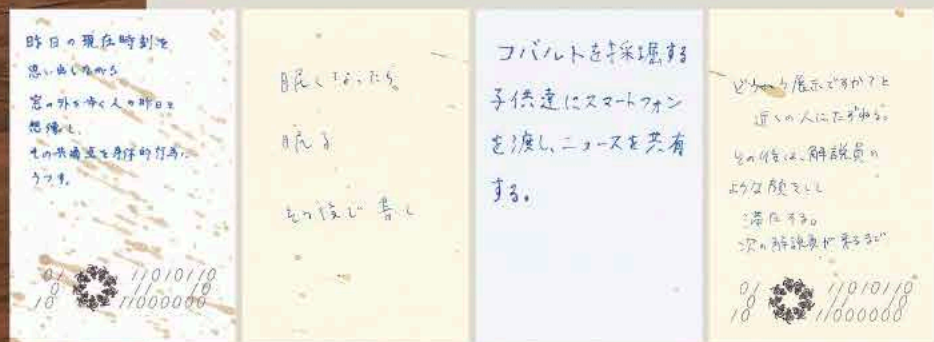 昨日の現在時刻を
思い出しながら
窓の外を歩く人の昨日を
想像し、
その共通点を身体的行為に
うつす。
01 11010110
0 11 10
10 11000000
眠くなったら
眠る
その後で書く
コバルトを採掘する
子供達にスマートフォン
を渡し、ニュースを共有
する。
どういう展示ですか?と
近くの人にたずねる。
その後は、解説員の
ような顔をして
滞在する。
次の解説員が来るまで
01 11010110
0 11 10
10 11000000